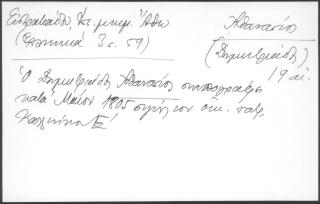 Εὐστρατιάδη, Κτ. μνημ. Ἄθω
(Ἑλληνικά 3 σ. 59)
Ἀθανάσιος
(Δημητριάδης)
19 αἰ.
Ὁ Δημητριάδης Ἀθανάσιος
κατά Μάϊον 1805 ἐπί τοῦ οἰκ. πατρ.
Καλλινίκου Ε΄